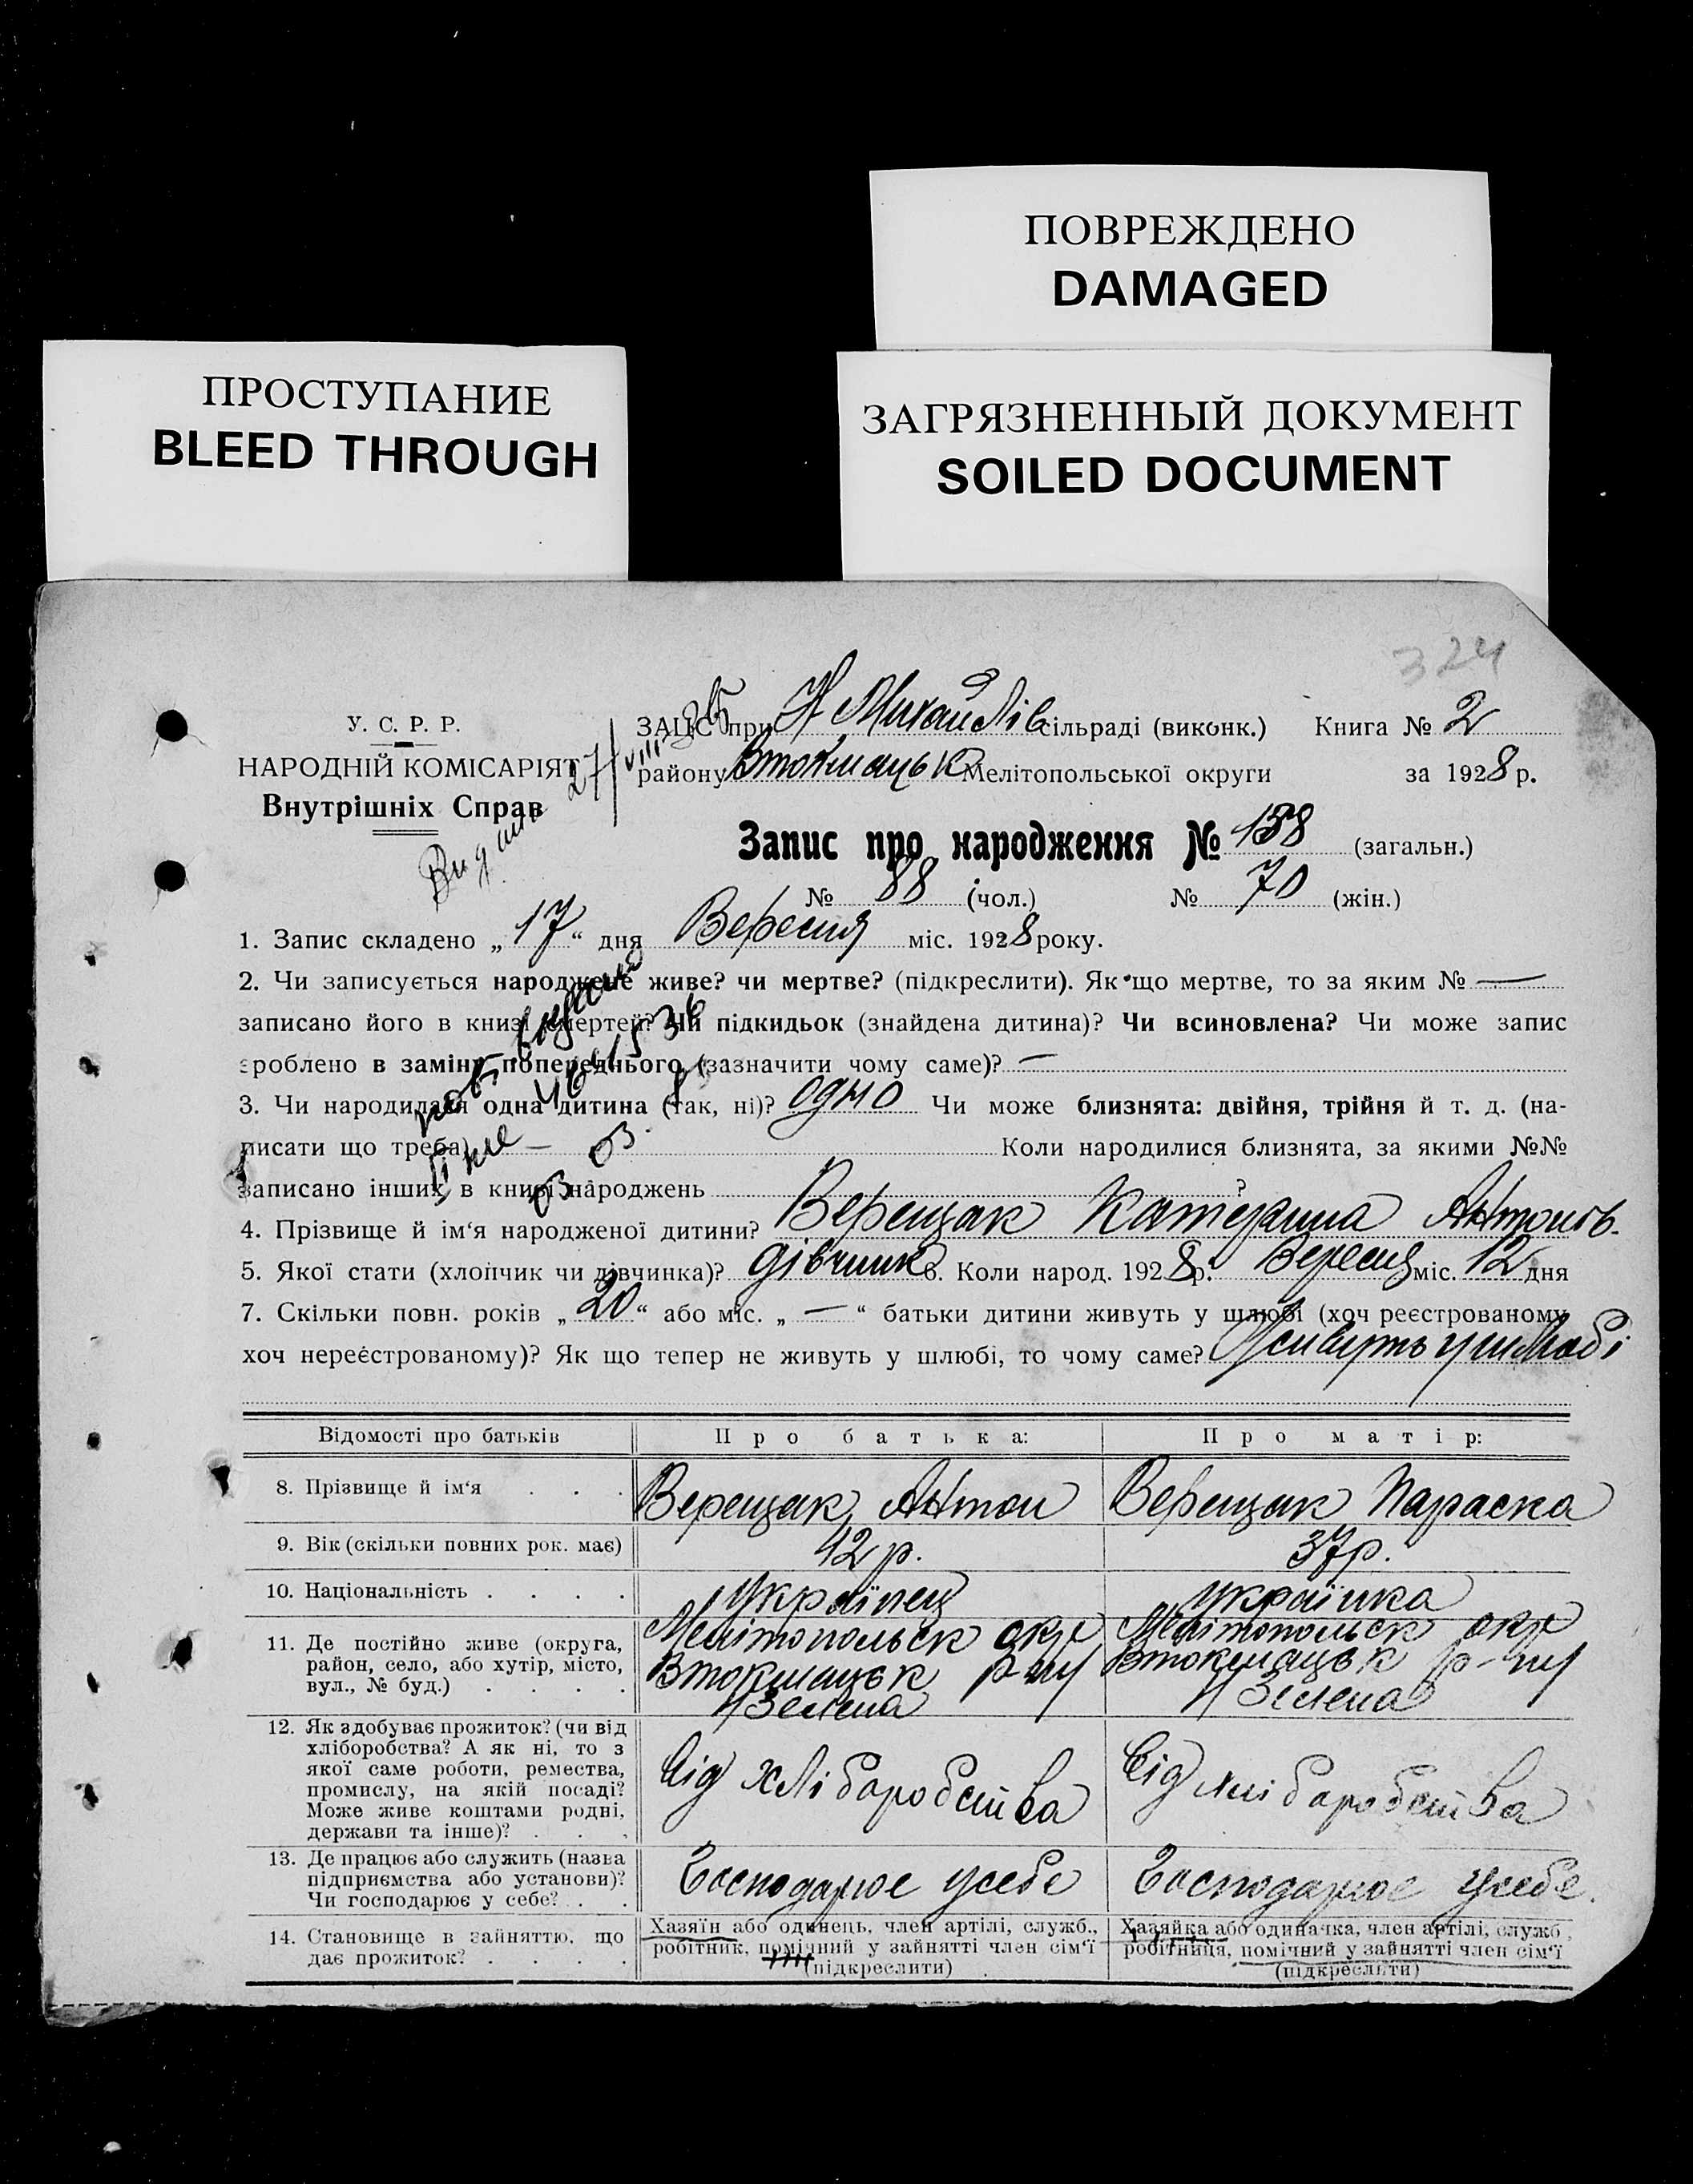 ПОВРЕЖДЕНО
DAMAGED
ПРОСТУПАНИЕ
BLEED THROUGH
ЗАГРЯЗНЕННЫЙ ДОКУМЕНТ
SOILED DOCUMENT
324
У. С. Р. Р.
НАРОДНІЙ КОМІСАРІЯТ
Внутрішніх Справ
Видано 27/VIII 35
ЗАЦС при Н Михайлів сільраді (виконк.) Книга № 2
району Втокмацьк Мелітопольської округи за 1928 р.
Запис про народження № 158 (загальн.)
№ 88 (чол.) № 70 (жін.)
1. Запис складено „17“ дня Вересня міс. 1928 року.
2. Чи записується народжене живе? чи мертве? (підкреслити). Як що мертве, то за яким № —
записано його в книзі смертей? Чи підкидьок (знайдена дитина)? Чи всиновлена? Чи може запис
зроблено в заміну попереднього (зазначити чому саме)? —
3. Чи народилася одна дитина (так, ні)? одно Чи може близнята: двійня, трійня й т. д. (на-
писати що треба) — Коли народилися близнята, за якими №№
записано інших в книзі народжень ?
4. Прізвище й ім‘я народженої дитини? Верещак Катерина Антонів.
5. Якої стати (хлопчик чи дівчинка)? дівчинк 6. Коли народ. 1928 р. Вересня міс. 12 дня
7. Скільки повн. років „20“ або міс. „—“ батьки дитини живуть у шлюбі (хоч реєстрованому
хоч нереєстрованому)? Як що тепер не живуть у шлюбі, то чому саме? Живуть у шлюбі
Відомості про батьків Про батька: Про матір:
8. Прізвище й ім‘я . . . Верещак Антон Верещак Параска
9. Вік (скільки повних рок. має) 42 р. 37 р.
10. Національність . . . . Українец українка
11. Де постійно живе (округа, район, село, або хутір, місто, вул., № буд.) . . . .
Мелітопольск окр
Втокмацьк р-ну
Зелена
Мелітопольск окр
Втокмацьк р-ну
Зелена
12. Як здобуває прожиток? (чи від
хліборобства? А як ні, то з
якої саме роботи, ремества,
промислу, на якій посаді?
Може живе коштами родні,
держави та інше)? . . .
Від хліборобства Від хліборобства
13. Де працює або служить (назва
підприємства або установи)?
Чи господарює у себе? . .
Господарює усебе Господарює усебе.
14. Становище в зайняттю, що
дає прожиток? . . . .
Хазяїн або одинець, член артілі, служб.,
робітник, помічний у зайнятті член сім‘ї
(підкреслити)
Хазяйка або одиначка, член артілі, служб.,
робітниця, помічний у зайнятті член сім‘ї
(підкреслити)